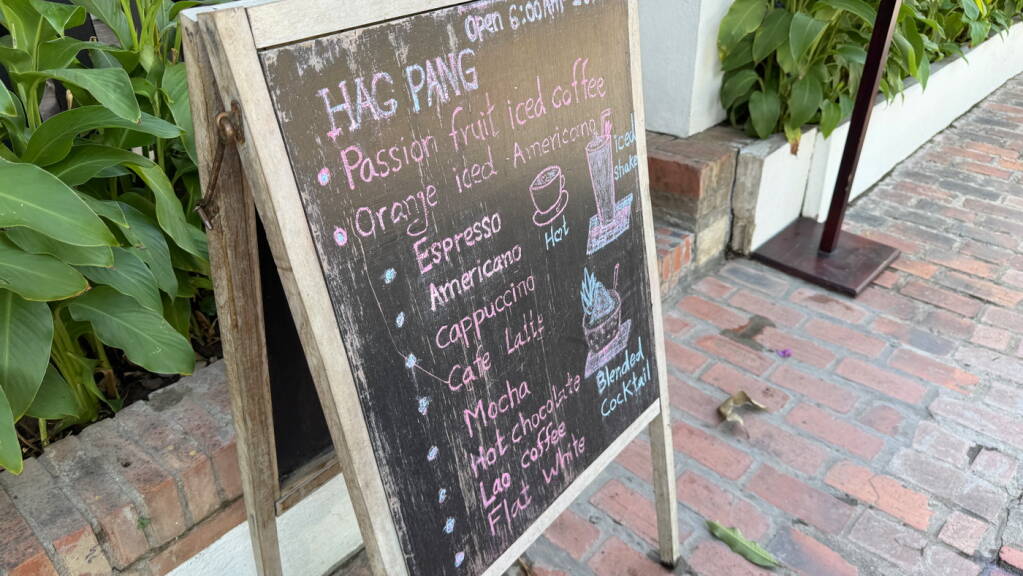 Open 6:00AM
HAG PANG
Passion fruit iced coffee
Orange iced Americano
Espresso
Americano
Cappuccino
Cafe Latte
Mocha
Hot chocolate
Lao coffee
Flat White
Hot
Iced
Shake
Blended
Cocktail